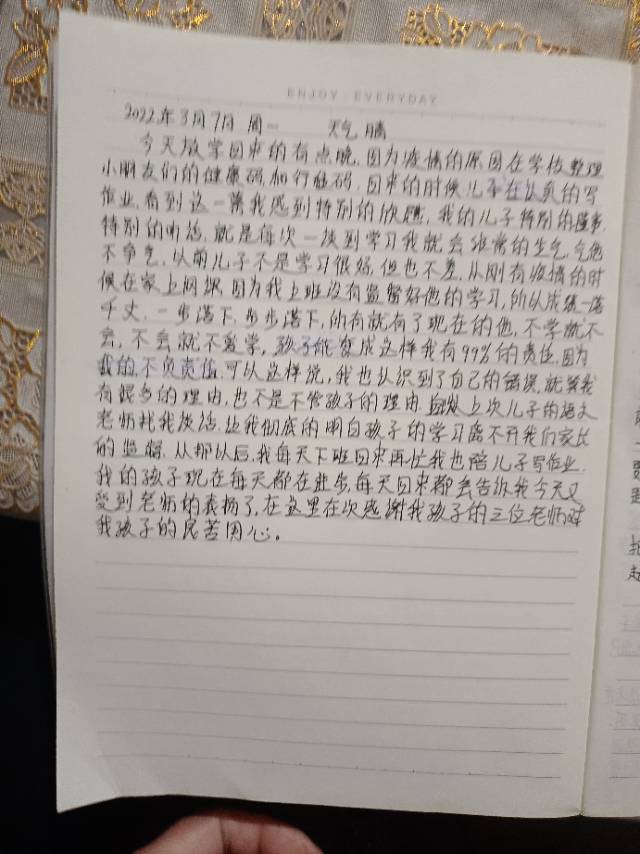 ENJOY EVERYDAY
2022年3月7日 周一 天气 晴
今天放学回来的有点晚,因为疫情的原因在学校整理
小朋友们的健康码,和行程码,回来的时候儿子在认真的写
作业,看到这一幕我感到特别的欣慰,我的儿子特别的懂事,
特别的听话,就是每次一谈到学习我就会非常的生气,气他
不争气,以前儿子不是学习很好,但也不差,从刚有疫情的时
候在家上网课因为我上班没有监督好他的学习,所以成绩一落
千丈,一步落下,步步落下,所有就有了现在的他,不学就不
会,不会就不爱学,孩子能变成这样我有99%的责任,因为
我的,不负责任,可以这样说,我也认识到了自己的错误,就算我
有很多的理由,也不是不管孩子的理由,上次儿子的语文
老师找我谈话,让我彻底的明白孩子的学习离不开我们家长
的监督,从那以后,我每天下班回来再忙我也陪儿子写作业,
我的孩子现在每天都在进步,每天回来都会告诉我今天又
受到老师的表扬了,在这里在次感谢我孩子的三位老师对
我孩子的良苦用心。